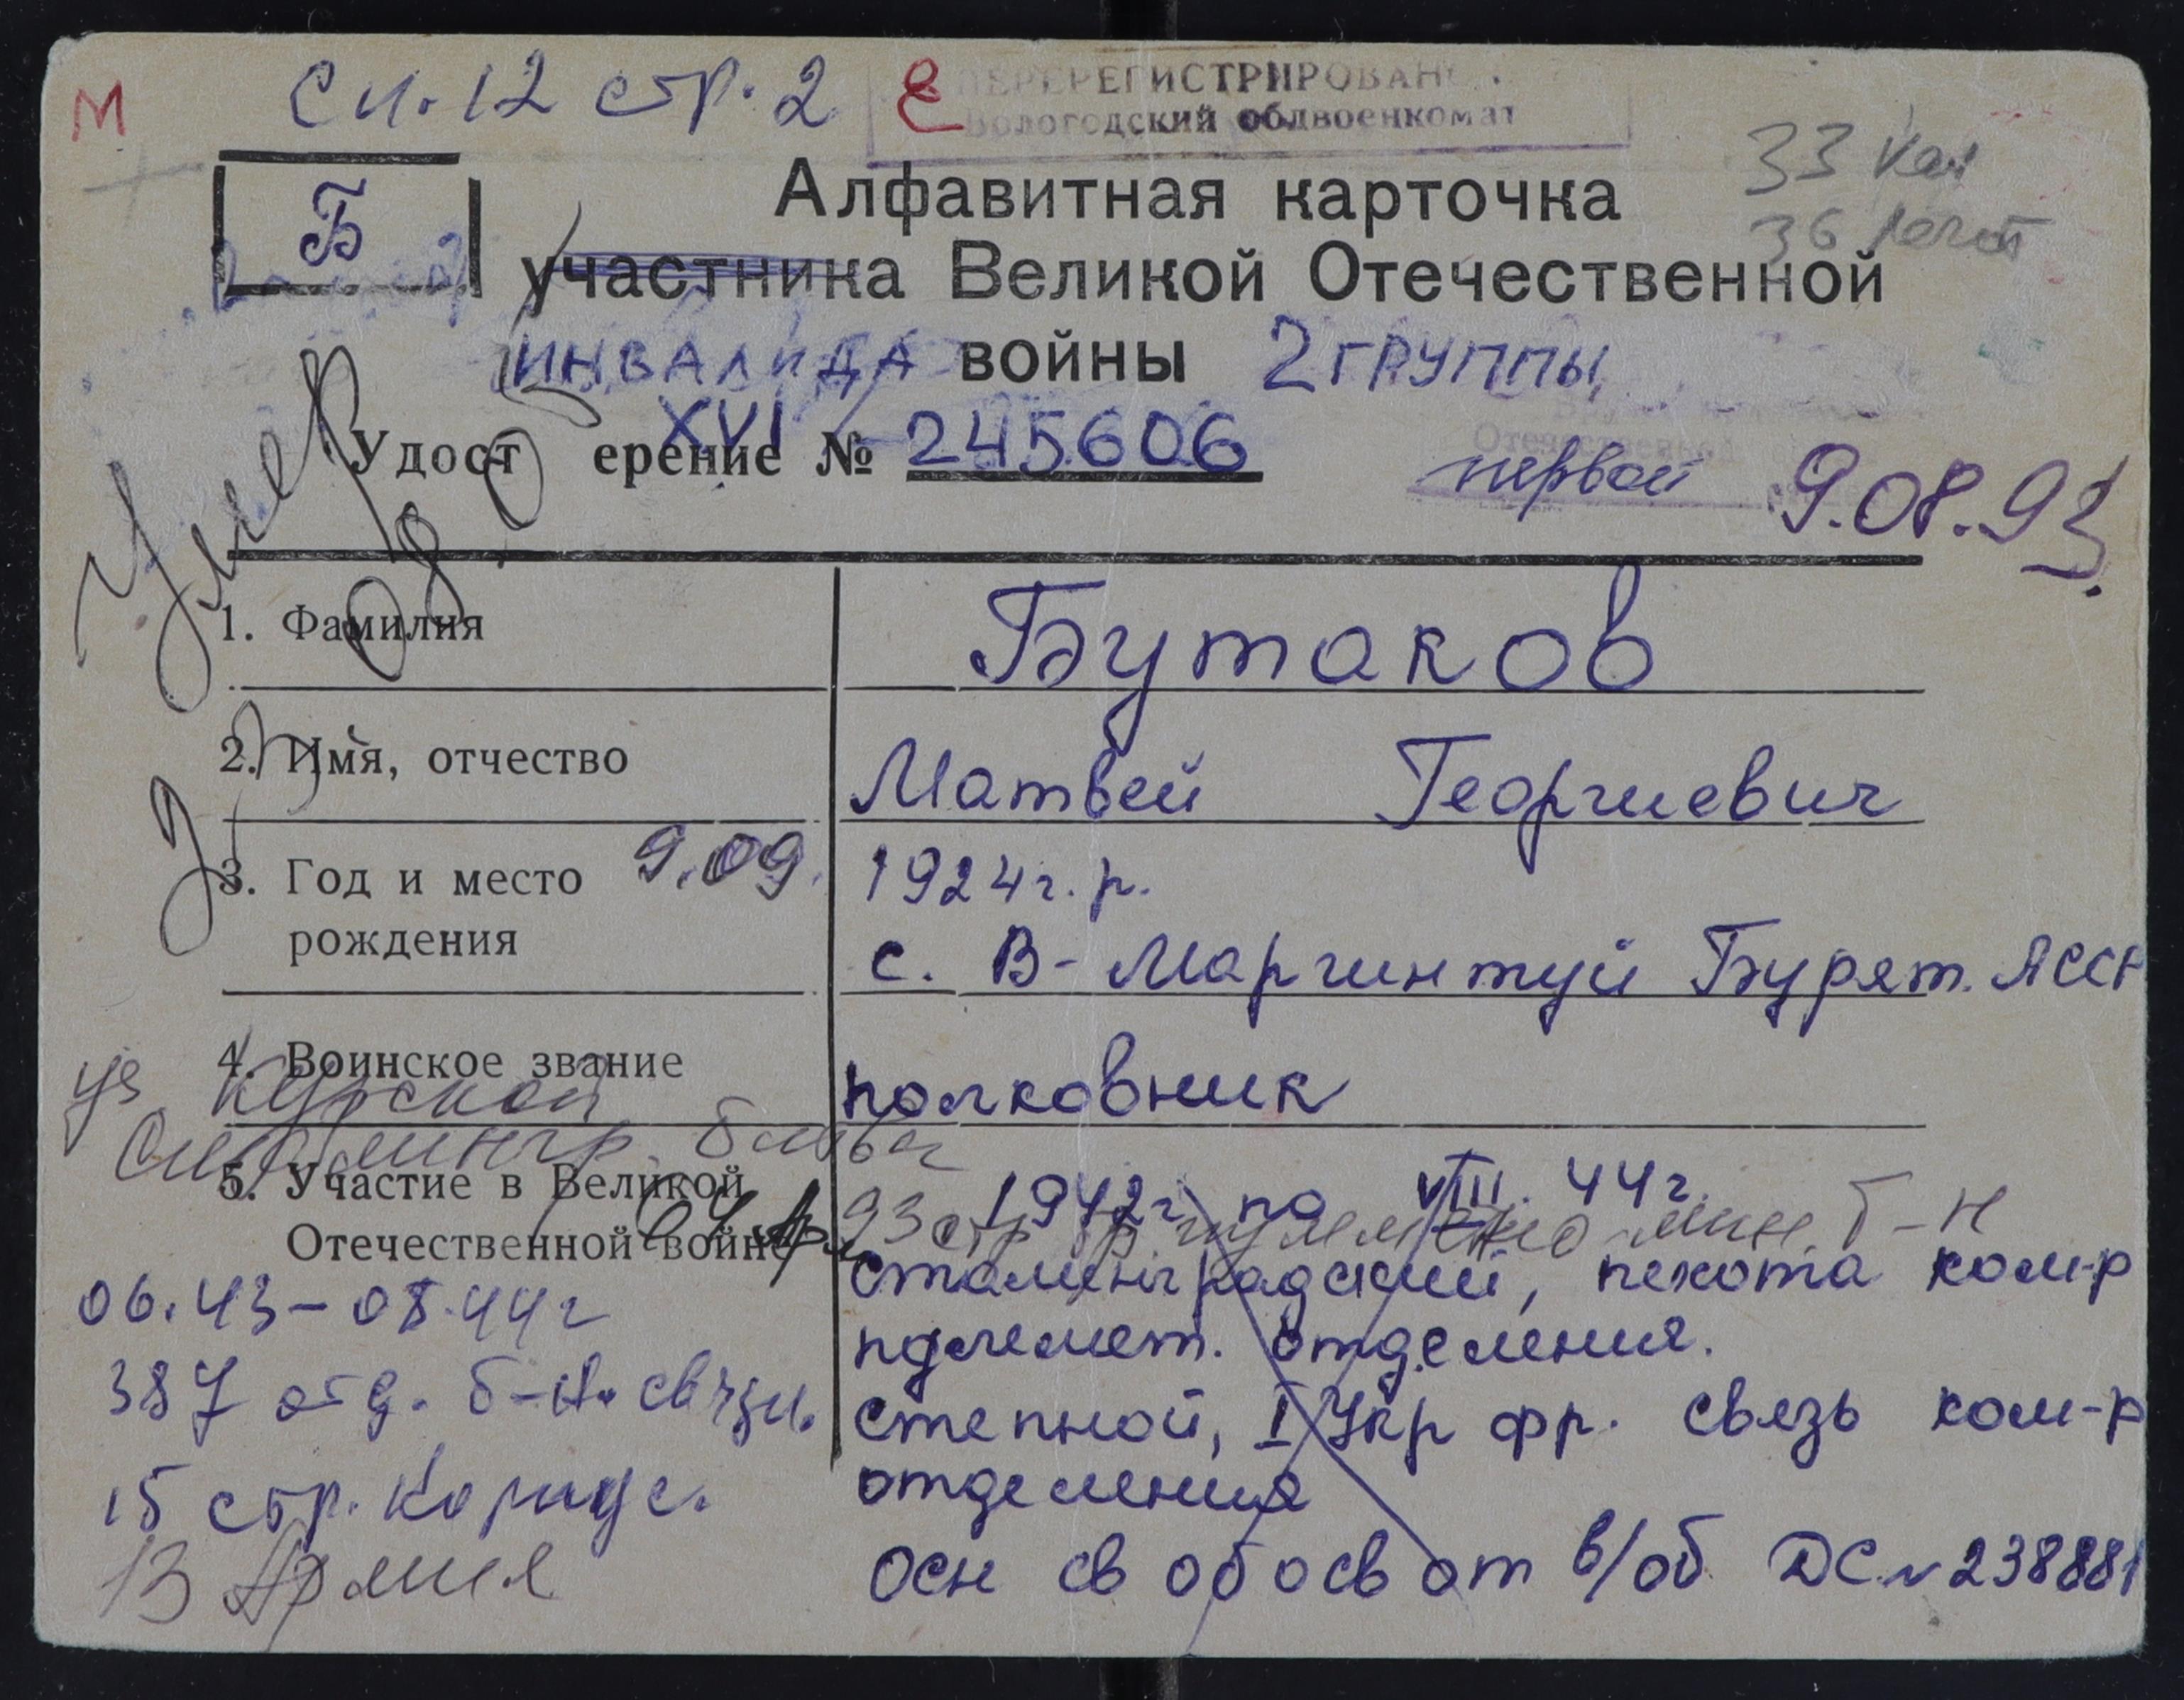 М
сп. 12 стр. 2
ПЕРЕРЕГИСТРИРОВАН
Вологодский облвоенкомат
33
36
Б
Алфавитная карточка
участника Великой Отечественной
ИНВАЛИДА войны 2 ГРУППЫ
Удостоверение XVI № 245606
первой 9.08.93
Умер
1. Фамилия Бутаков
2. Имя, отчество Матвей Георгиевич
3. Год и место рождения 9.09. 1924 г.р.
с. В-Маргинтуй Бурят. АССР
4. Воинское звание полковник
уч Курской
Сталингр. битвы
5. Участие в Великой Отечественной войне
1942г по VIII. 44г.
93 стр мин. б-н
сталинградский, пехота ком-р
пулемет. отделения.
степной, I Укр фр. связь ком-р
отделения
осн св об осв от в/об ДС № 238881
06.43-08.44г
387 отд. б-н. связи.
15 стр. Корпус.
13 Армия